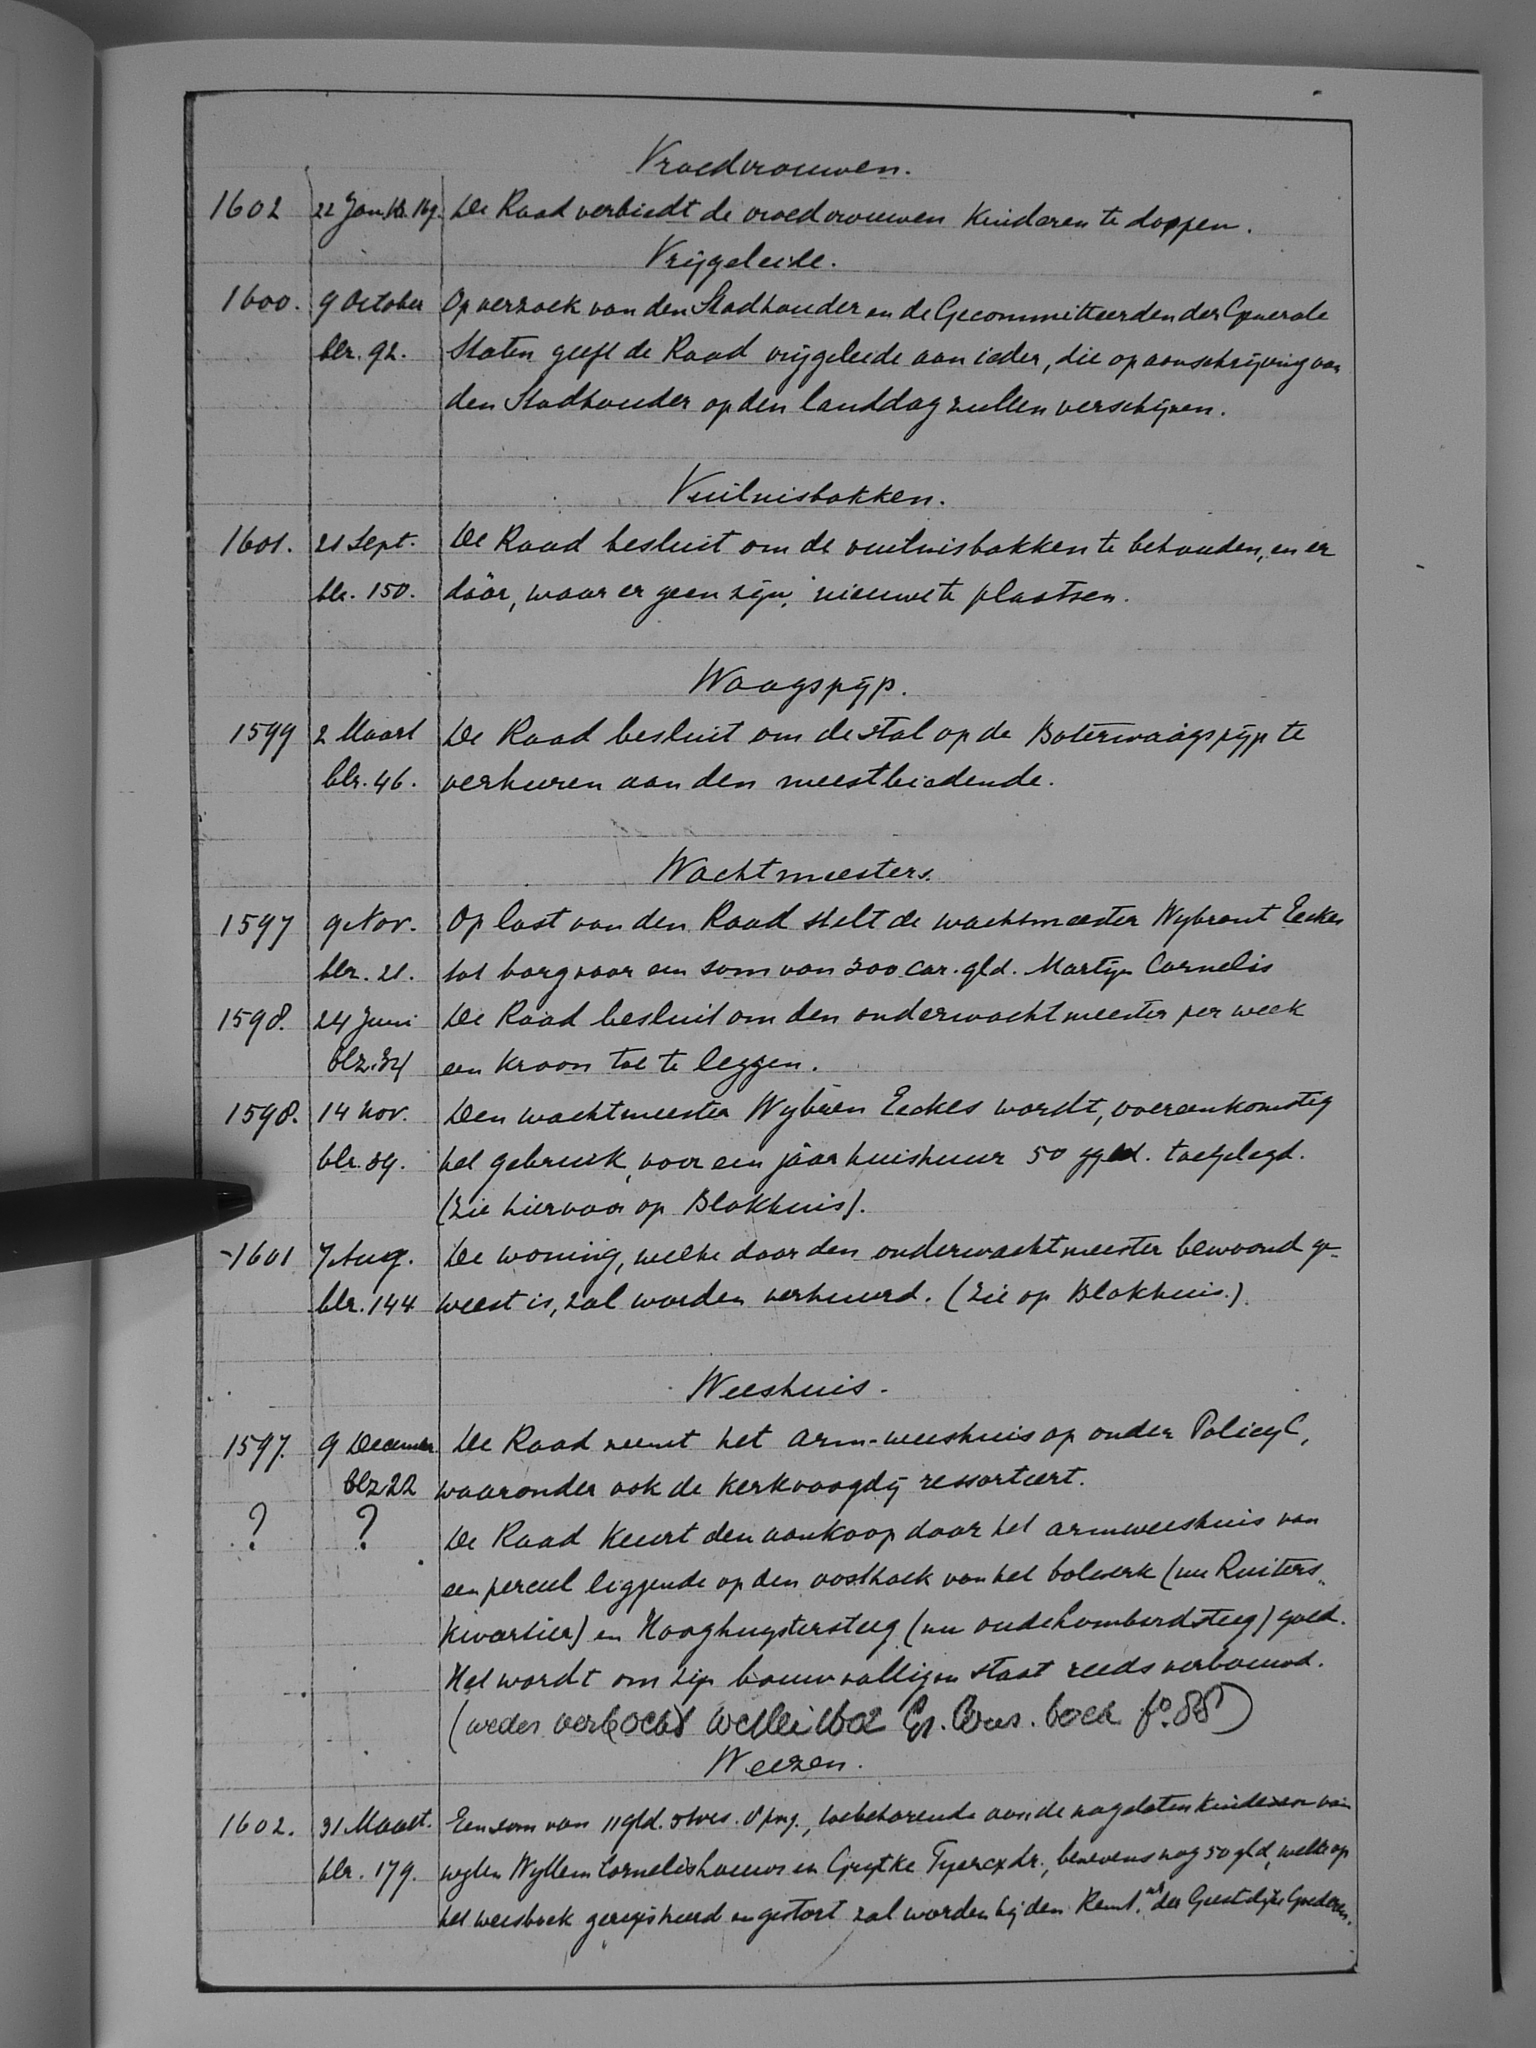 Vroedvrouwen.
1602 22 Jan. blz. 169. De Raad verbiedt de vroedvrouwen kinderen te doopen.
Vrijgeleide.
1600. 9 October Op verzoek van den Stadhouder en de Gecommitteerden der Generale
blz. 92. Staten geeft de Raad vrijgeleide aan ieder, die op aanschrijving van
den Stadhouder op den landdag zullen verschijnen.
Vuilnisbakken.
1601. 21 Sept. De Raad besluit om de vuilnisbakken te behouden, en er
blz. 150. dáár, waar er geen zijn, nieuwe te plaatsen.
Waagspijp.
1599 2 Maart De Raad besluit om de stal op de Boterwaagspijp te
blz. 46. verhuren aan den meestbiedende.
Wachtmeesters.
1597 9 Nov. Op last van den Raad stelt de wachtmeester Wybrant Eeckes
blz. 21. tot borg voor een som van 300 car. gld. Martijn Cornelis
1598. 24 Juni De Raad besluit om den onderwachtmeester per week
blz. 34 een kroon toe te leggen.
1598. 14 Nov. Den wachtmeester Wybren Eeckes wordt, overeenkomstig
blz. 39. het gebruik, voor een jáár huishuur 50 ggld. toegelegd.
(Zie hiervoor op Blokhuis).
1601 7 Aug. De woning, welke door den onderwachtmeester bewoond ge-
blz. 144 weest is, zal worden verhuurd. (Zie op Blokhuis.)
Weeshuis.
1597. 9 December De Raad neemt het arm-weeshuis op onder Policy C,
blz 22 waaronder ook de kerkvoogdij ressorteert.
? ? De Raad keurt den aankoop door het armweeshuis van
een perceel liggende op den oosthoek van het bolwerk (nu Ruiters-
kwartier) en Hooghuystersteeg (nu oude Lombardsteeg) goed.
Het wordt om zijn bouwvalligen staat reeds verbouwd.
(weder verkocht 1602 Gr. Cons. boek fo. 88)
Weezen.
1602. 31 Maart. Een som van 11 gld. 5 tvs. 8 png., toebehorende aan de nagelaten kinderen van
blz. 179. wijlen Wyllem Cornelishouws en Gryttke Tyercx dr., benevens nog 50 gld, welke op
het weesboek geregistreerd en gestort zal worden bij den Rent.mr der Geestelijke Goederen.